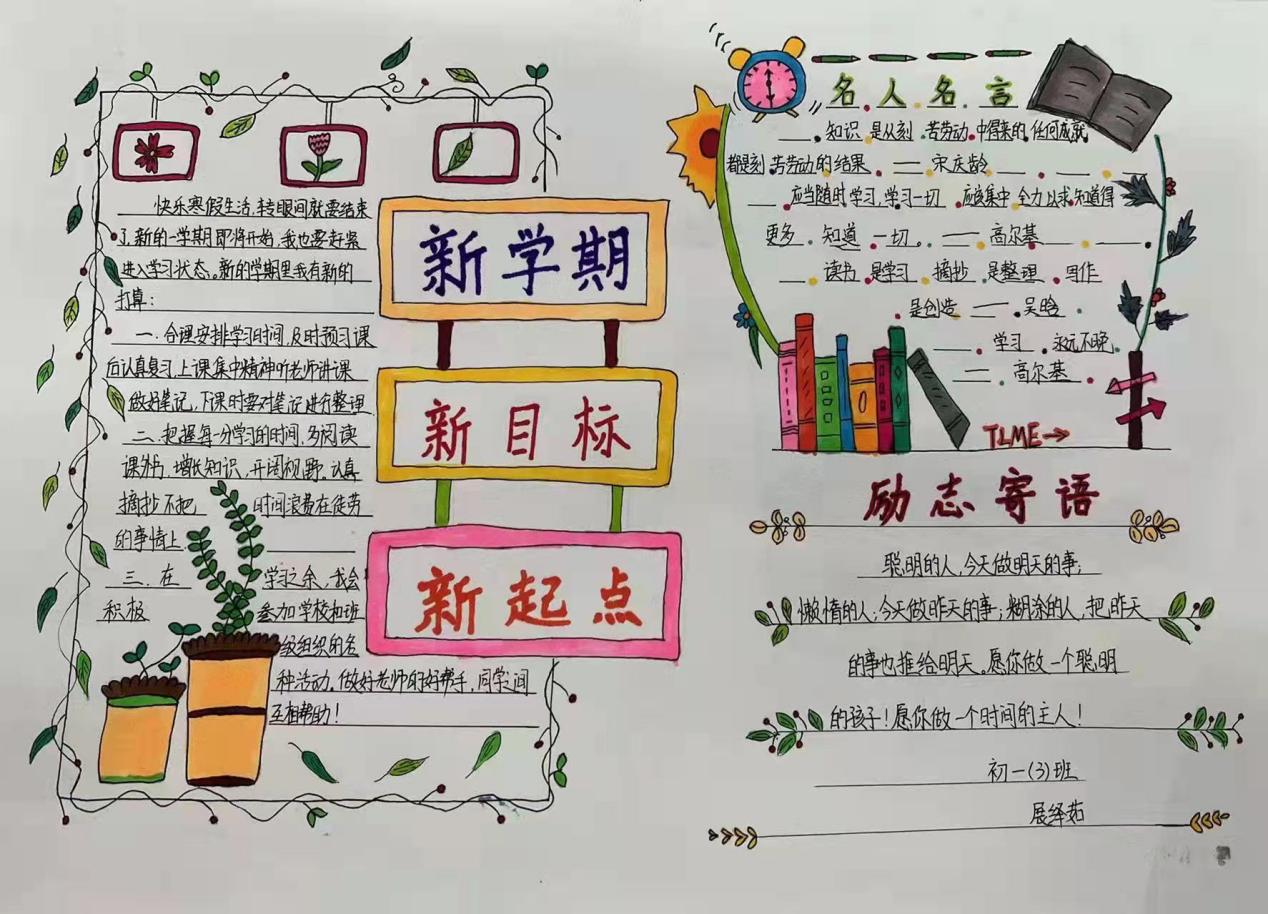 快乐寒假生活,转眼间就要结束
了.新的一学期即将开始,我也要赶紧
进入学习状态。新的学期里我有新的
打算:
一.合理安排学习时间,及时预习课
后认真复习,上课集中精神听老师讲课
做好笔记,下课时要对笔记进行整理
二.把握每一分学习的时间,多阅读
课外书,增长知识,开阔视野。认真
摘抄不把 时间浪费在徒劳
的事情上
三.在 学习之余,我会
积极 参加学校和班
级组织的各
种活动。做好老师的好帮手,同学间
互相帮助!
新学期
新目标
新起点
名人名言
知识是从刻苦劳动中得来的,任何成就
都是刻苦劳动的结果。——宋庆龄
应当随时学习,学习一切,应该集中全力以求知道得
更多,知道一切。——高尔基
读书是学习,摘抄是整理,写作
是创造——吴晗
学习永远不晚
——高尔基
TLME→
励志寄语
聪明的人,今天做明天的事;
懒惰的人;今天做昨天的事;糊涂的人,把昨天
的事也推给明天。愿你做一个聪明
的孩子!愿你做一个时间的主人!
初一(3)班
展绎茹